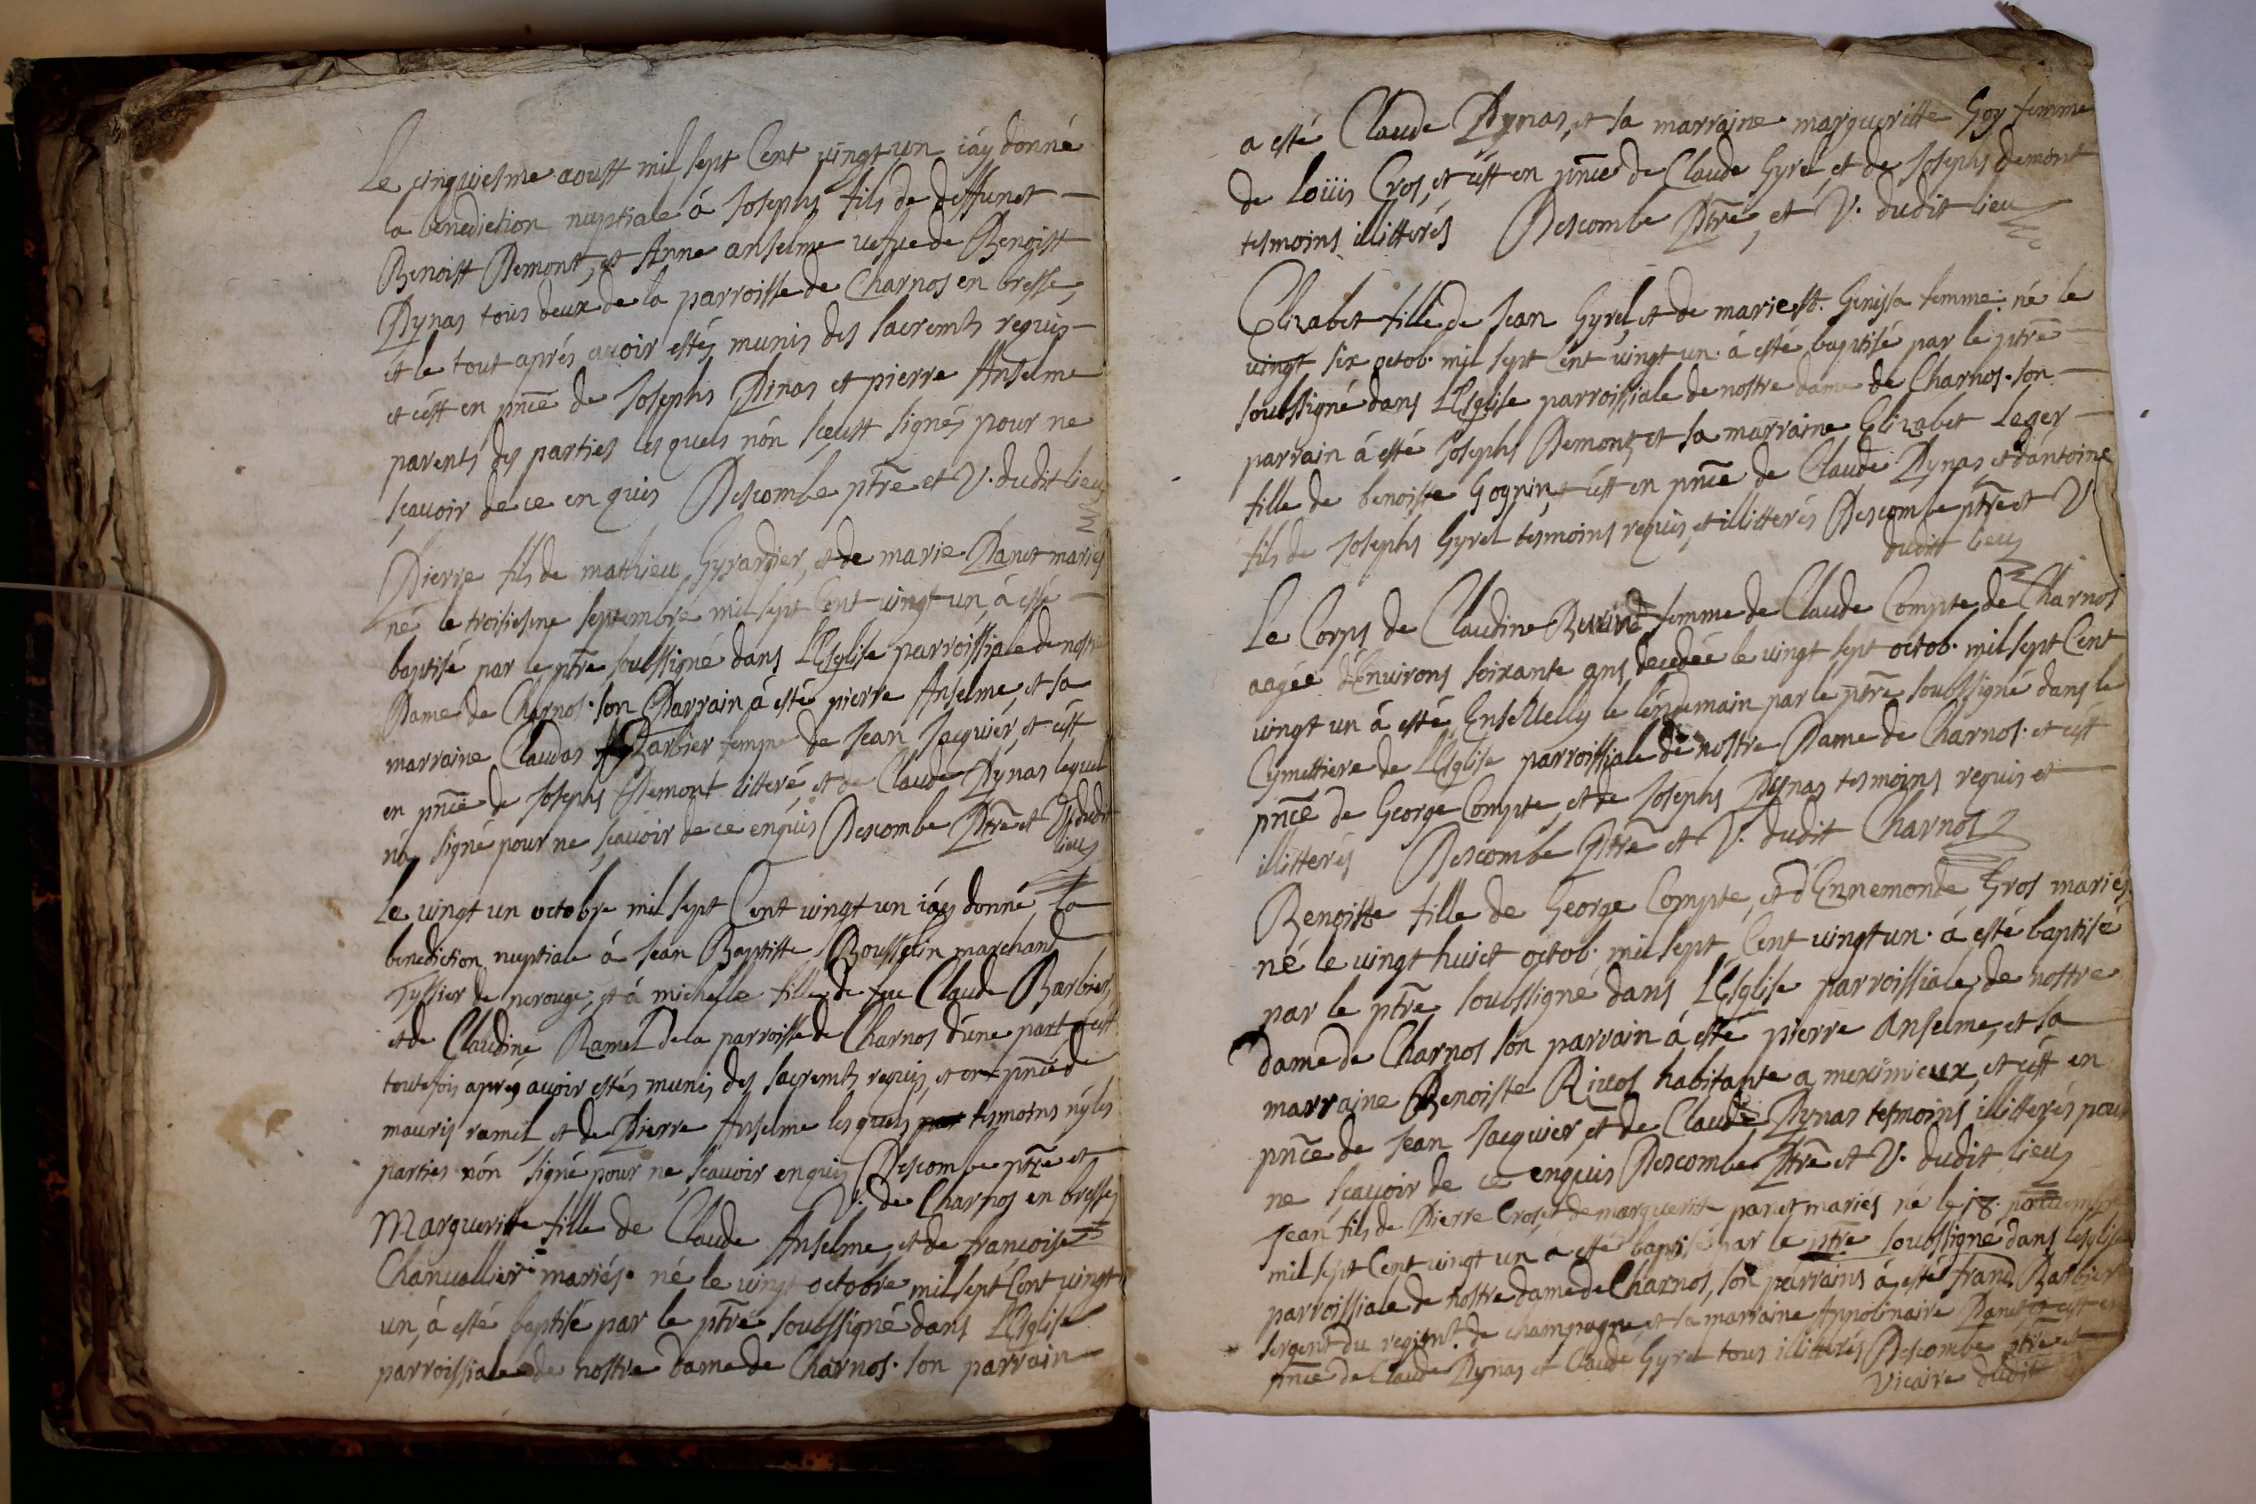 Le cinquiesme aoust mil sept Cent vingt un iáy donné
la benediction nuptiale á Josephs fils de deffunct
Benoist Demont, et Anne anselme vefve de Benoist
Dynas tous deux de la parroisse de Charnos en bresse,
et le tout aprés avoir estés munis des sacremts requis
et c'est en pñce de Josephs Dinas et pierre Anselme
parents des parties lesquels nón sceust signés pour ne
sçavoir de ce enquis Descombe ptrē et V. dudit lieu
Pierre fils de mathieu Gyrardier, et de marie Panet mariés
né le troisiesme septembre mil sept Cent vingt un, á esté
baptisé par le ptrē soubssigné dans L'Esglise parroissiale de nostre
Dame de Charnos. son Parrain á esté pierre Anselme, et sa
marraine Claudas Barbier femme de Jean Jacquier, et c'est
en pñce de Josephs Demont litteré et de Claude Dynas lequel
ná signé pour ne sçavoir de ce enquis Descombe Ptrē et V. dudit
lieu
Le vingt un octobre mil sept Cent vingt un iáy donné la
benediction nuptiale á Jean Baptiste Rousselin marchand
Tyssier de perouge, et á michelle fille de feu Claude Barbier,
et de Claudine Ramel de la parroisse de Charnos d'une part c'est
toutefois aprés avoir estés munis des sacremts requis, et en pñce de
mauris ramel et de Pierre Anselme lesquels tesmoins ny les
parties nón signé pour ne sçavoir enquis Descombe ptrē et
V. de Charnos en bresse
Margueritte fille de Claude Anselme, et de francoise
Chanvallier mariés. né le vingt octobre mil sept Cent vingt
un, á esté baptisé par le ptrē soubssigné dans L'Esglise
parroissiale de nostre dame de Charnos. son parrain
a esté Claude Dynas, et sa marraine margueritte Goy femme
de Loüis Cros, et c'est en pñce de Claude Gyrel, et de Josephs demont
tesmoins illitterés Descombe Ptrē, et V. dudit lieu
Elizabet fille de Jean Gyrel, et de marie Genissa femme: né le
vingt six octob. mil sept Cent vingt un. á esté baptisé par le ptrē
soubssigné dans L'Esglise parroissiale de nostre dame de Charnos. son
parrain á esté Josephs Demont, et sa marraine Elizabet Leger
fille de benoiste Gognin, et c'est en pñce de Claude Dynas et d'antoine
fils de Josephs Gyrel tesmoins requis, et illitterés Descombe ptrē et V
dudit lieu
Le Corps de Claudine femme de Claude Compte de Charnos
aagée d'Environs soixante ans, decedée le vingt sept octob. mil sept Cent
vingt un á esté Ensevelly le lendemain par le ptrē soubssigné dans le
Cymettiere de L'Esglise parroissiale de nostre Dame de Charnos. et c'est
pñce de George Compte, et de Josephs Dynas tesmoins requis et
illitterés Descombe Ptrē et V. dudit Charnos
Benoiste fille de George Compte, et d'Ennemonde Gros mariés
né le vingt huict octob. mil sept Cent vingt un. á esté baptisé
par le ptrē soubssigné dans L'Esglise parroissiale de nostre
dame de Charnos son parrain á esté pierre Anselme, et sa
marraine Benoiste Rivos habitante a meximieux, et c'est en
pñce de Jean Jacquier, et de Claude Dynas tesmoins illitterés pour
ne sçavoir de ce enquis Descombe Ptrē et V. dudit lieu
Jean fils de Pierre Cros, et de margueritte panet mariés né le 18. novembre
mil sept Cent vingt un á esté baptisé par le ptrē soubssigné dans L'esglise
parroissiale de nostre dame de Charnos, son parrains á esté franc. Barbier
sergent du regimt. de champagne, et sa marraine Appolinaire Panet, et c'est en
pñce de Claude Dynas et Claude Gyrel tous illitterés Descombe ptrē et
Vicaire dudit